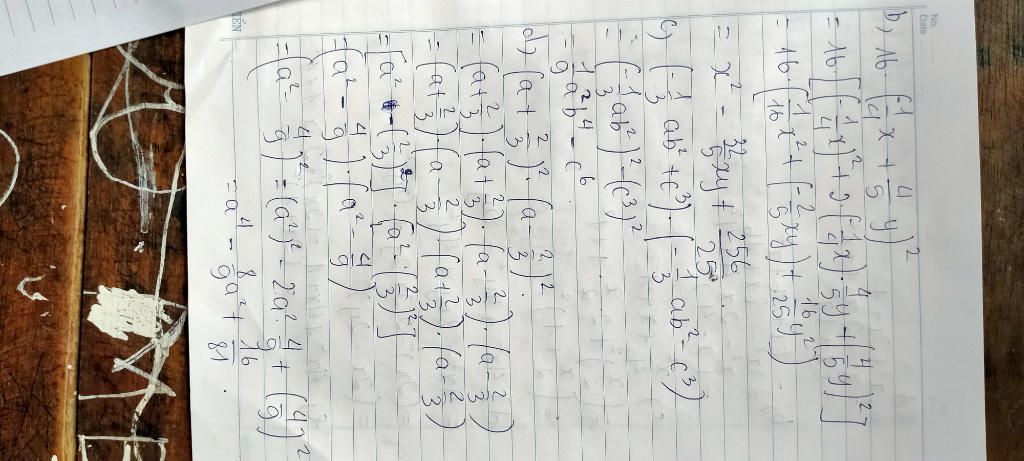 No.
Date
b) 16. (-1/4 x + 4/5 y)²
= 16. [(-1/4 x)² + 2.(-1/4 x). 4/5 y + (4/5 y)²]
= 16. (1/16 x² + (-2/5 xy) + 16/25 y²)
= x² - 32/5 xy + 256/25 .
c) (-1/3 ab² + c³) . (-1/3 ab² - c³)
= (-1/3 ab²)² - (c³)²
= 1/9 a²b⁴ - c⁶ .
d) (a + 2/3)² . (a - 2/3)² .
= (a + 2/3) . (a + 2/3) . (a - 2/3) . (a - 2/3)
= (a + 2/3) . (a - 2/3) . (a + 2/3) . (a - 2/3)
= [a² - (2/3)²] . [a² - (2/3)²]
= (a² - 4/9) . (a² - 4/9)
= (a² - 4/9)² = (a²)² - 2a². 4/9 + (4/9)²
= a⁴ - 8/9 a² + 16/81 .